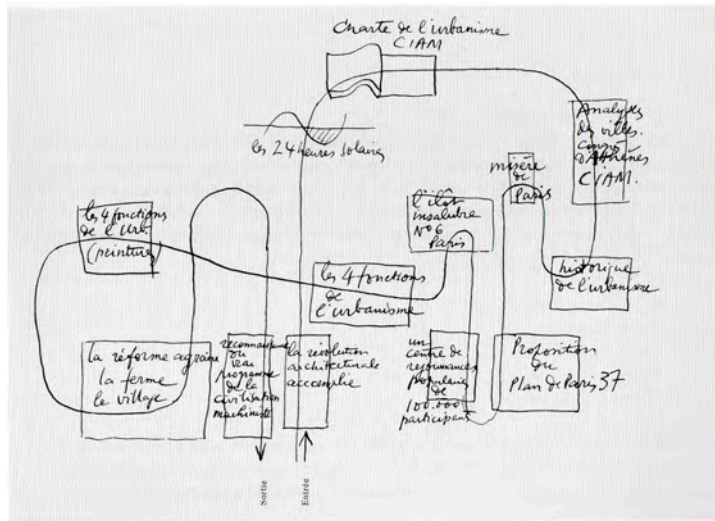 Charte de l'urbanisme
CIAM
les 24 heures solaires
Analyses
des villes.
congrès
d'Athènes
CIAM
misère
de
Paris
l'ilôt
insalubre
No 6
Paris
les 4 fonctions
de l'urb.
(peinture)
les 4 fonctions
de
l'urbanisme
historique
de l'urbanisme
la réforme agraire
la ferme
le village
reconnaissance
du
programme
de la
civilisation
machiniste
la révolution
architecturale
accomplie
un
centre de
réjouissances
populaires
de
100.000
participants
Proposition
du
Plan de Paris 37
Sortie
Entrée